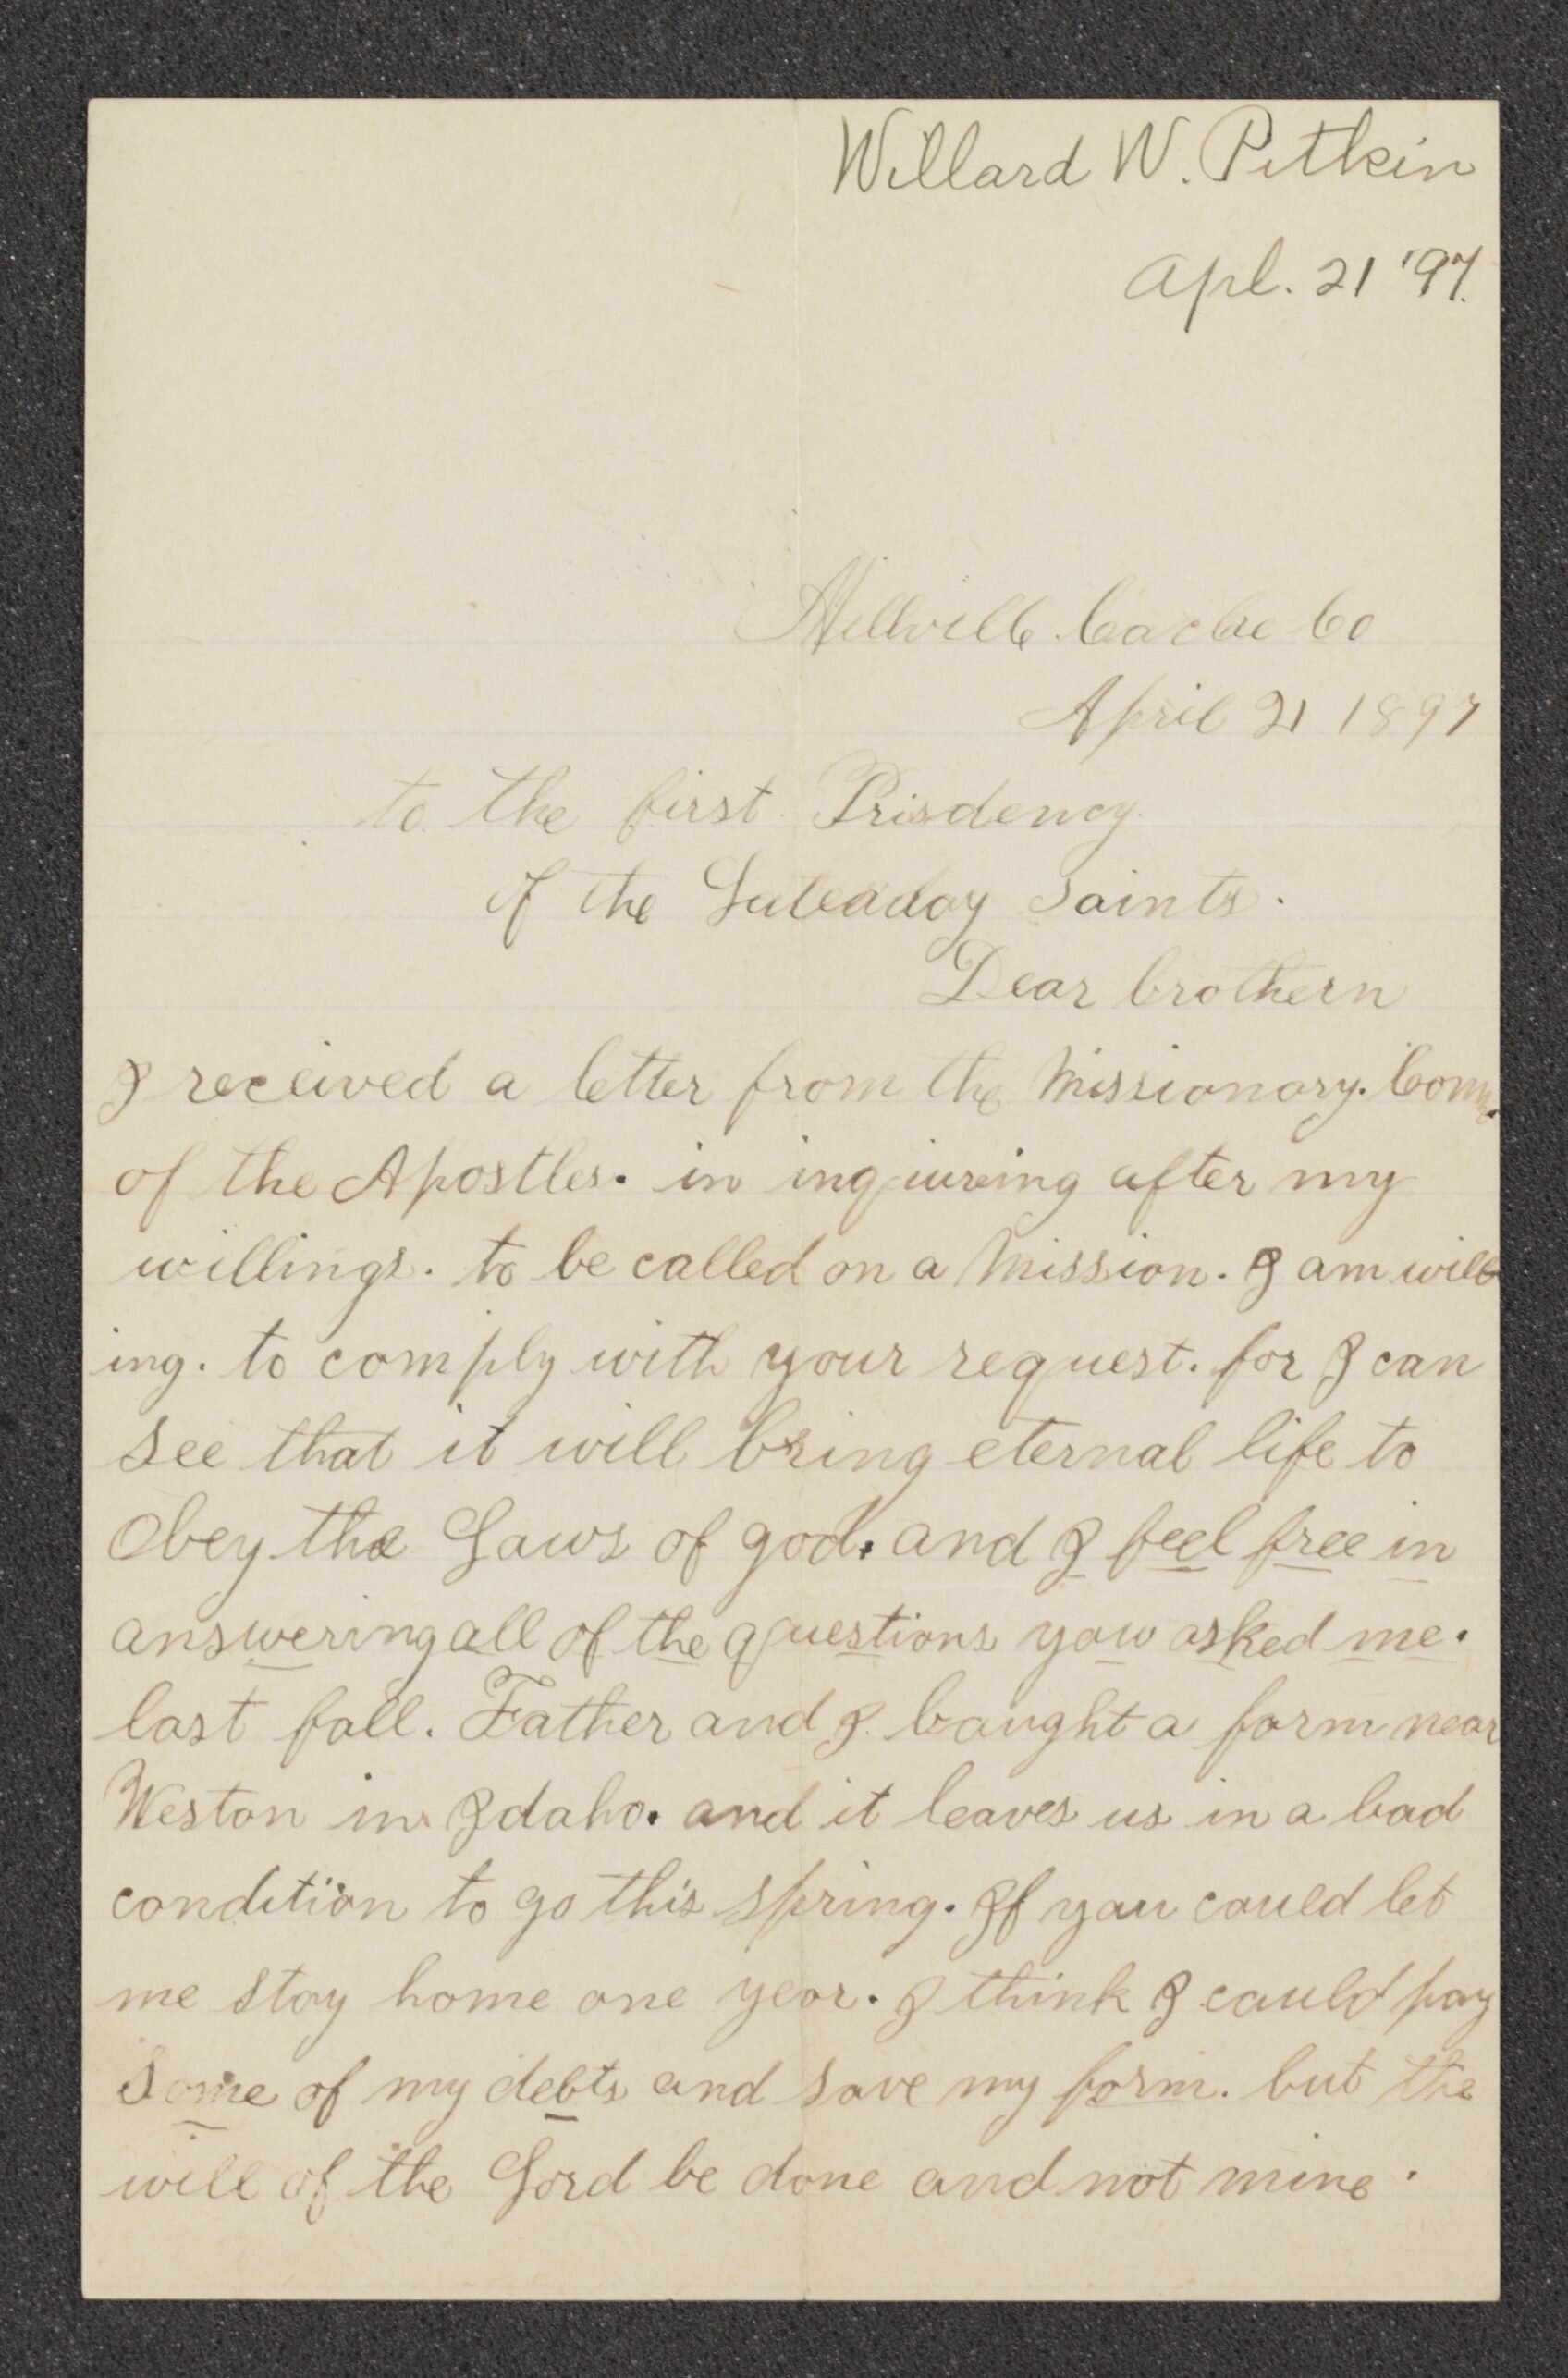 Willard W. Pitkin
Apl. 21 '97.
Millville. Cache Co
April 21 1897
to the first Prisdency.
of the Lateaday Saints.
Dear brothern
I received a letter from the Missionary. Comm.
of the Apostles. in inqiureing after my
willings. to be called on a Mission. I am will
ing. to comply with your request. for I can
see that it will bring eternal life to
Obey the Laws of god. and I feel free in
answering all of the questions yow asked me.
last fall. Father and I. baught a farm near
Weston in Idaho. and it leaves us in a bad
condition to go this spring. If you could let
me stay home one year. I think I could pay
some of my debts and save my farm. but the
will of the Lord be done and not mine.